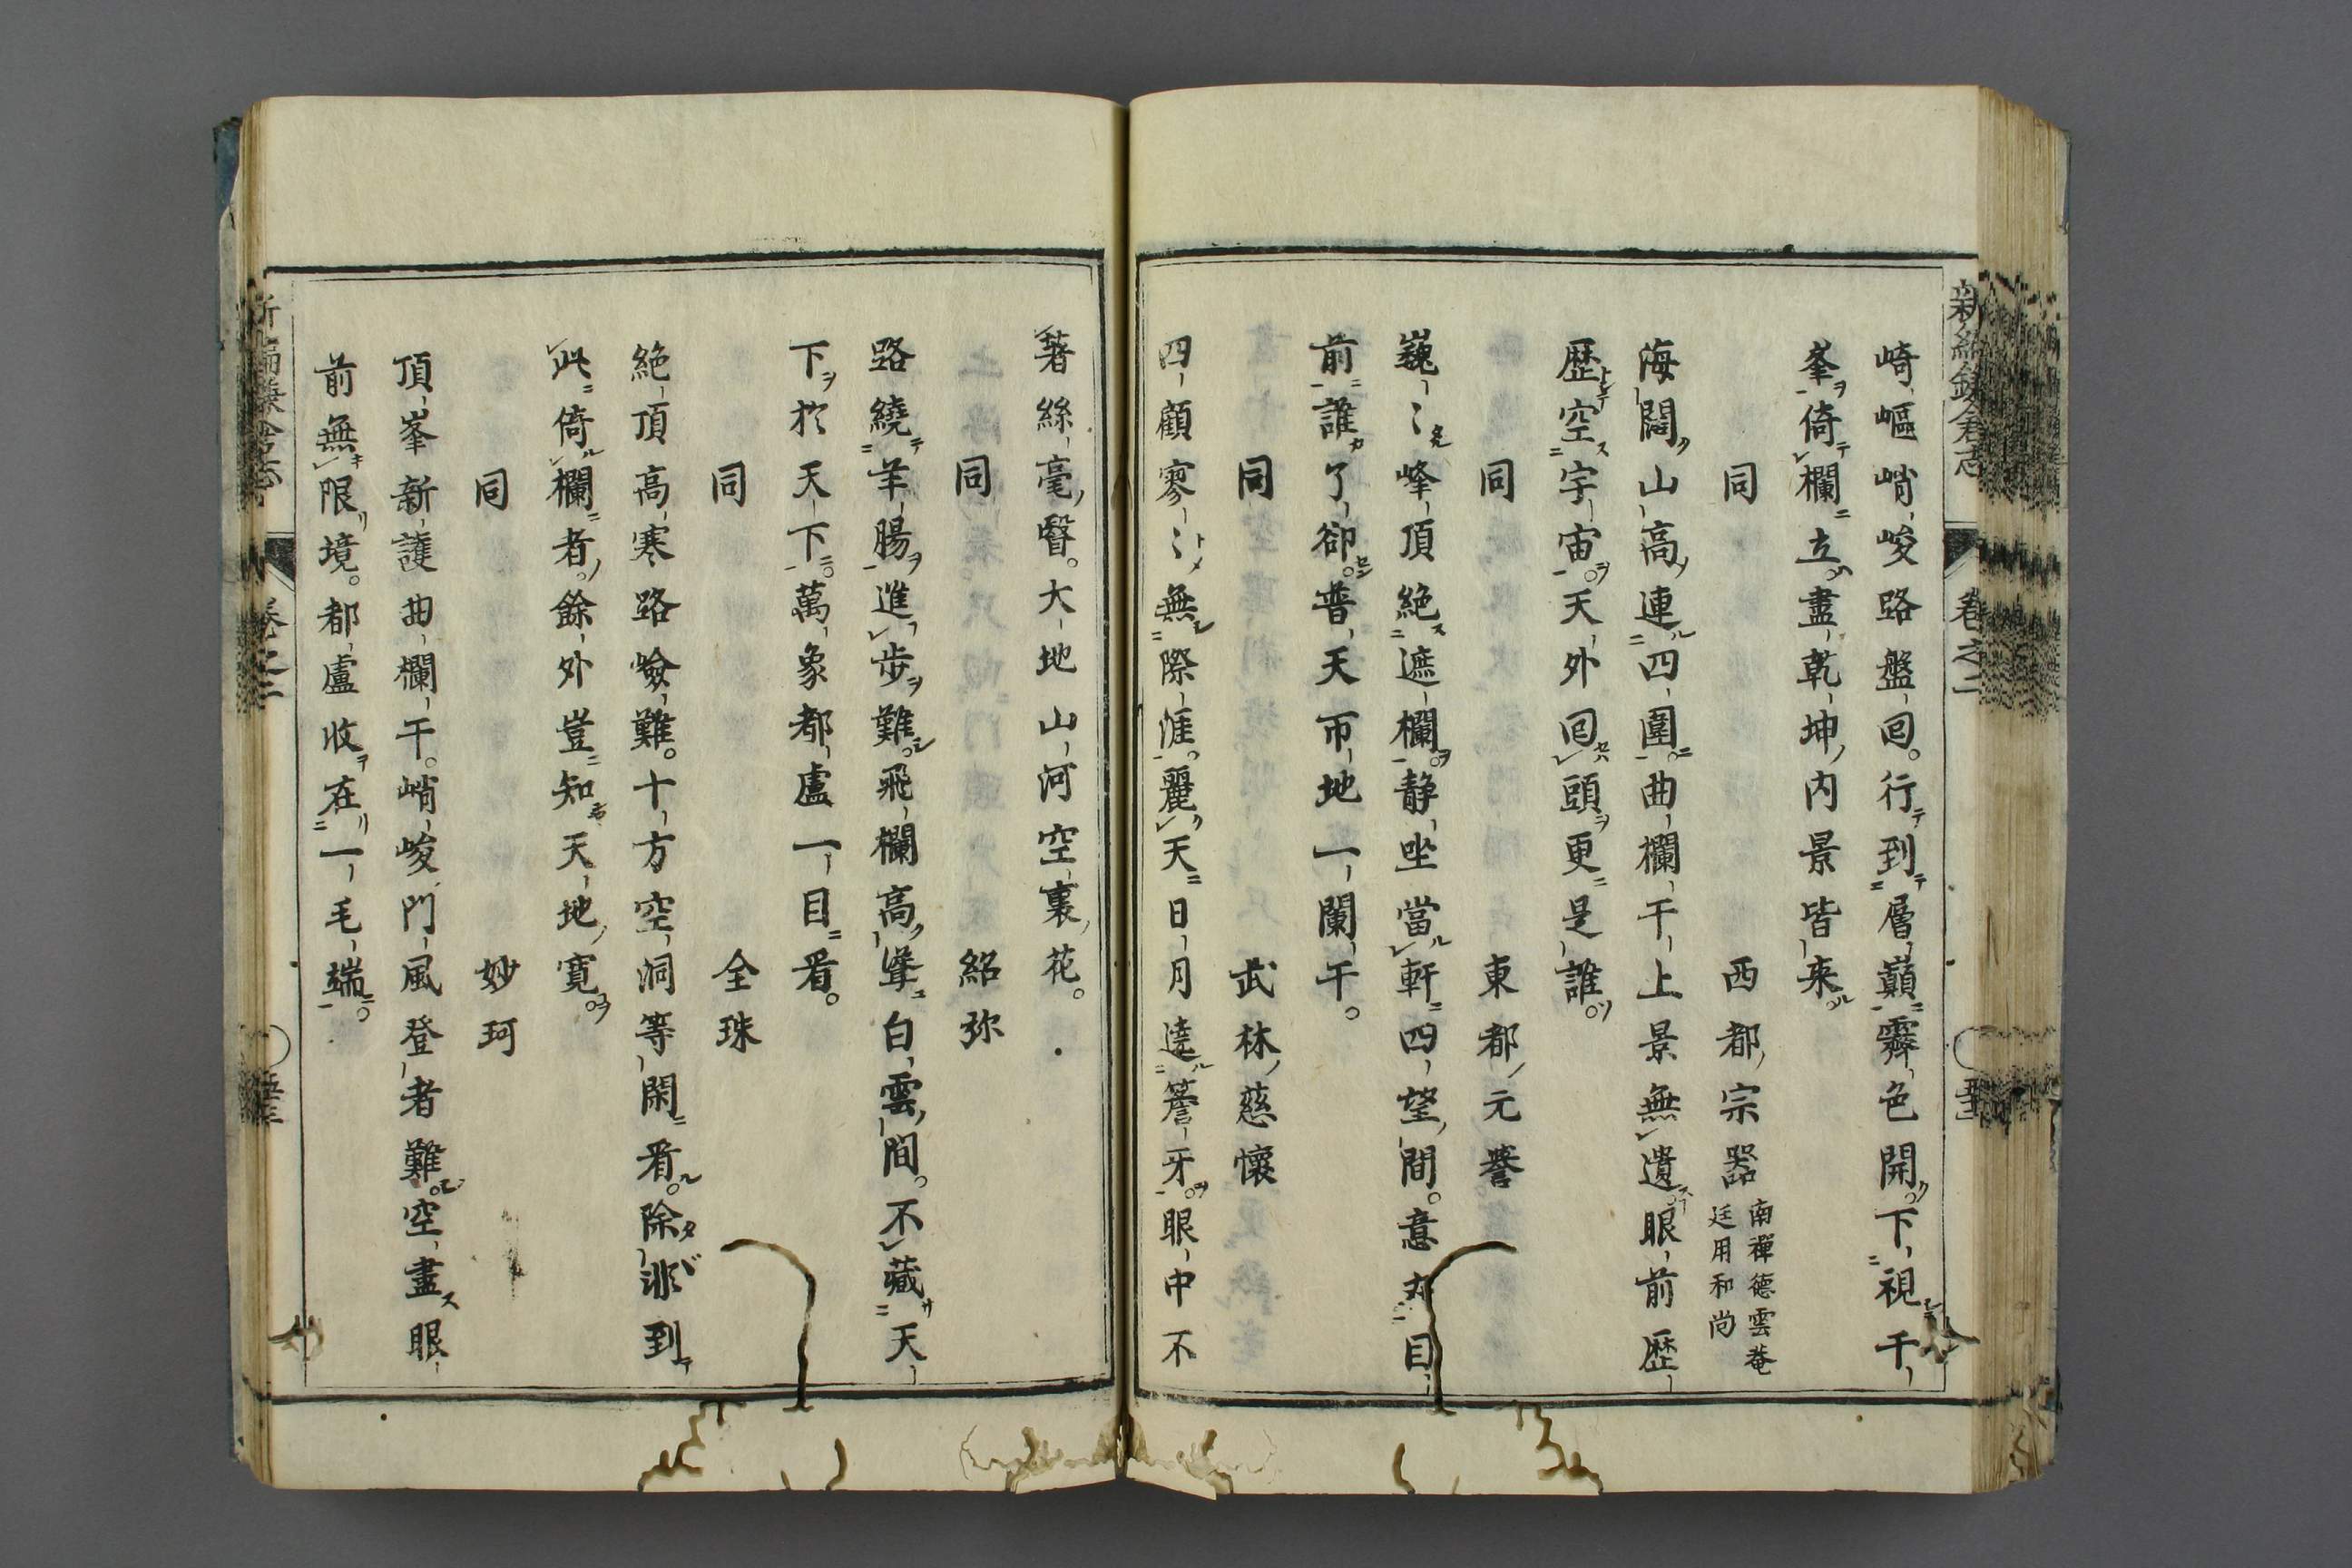 崎嶇峭峻路盤回。行到層巓霽色開。下視千
峯倚欄立。盡乾坤内景皆来
同　西都宗器 南禪徳雲菴廷用和尚
海闊山高連四圍。曲欄干上景無遺。眼前歴
歴空宇宙。天外回頭更是誰。
同　東都元誉
巍〻峰頂絶遮欄。静坐當軒四望間。意在目
前誰了卻。普天帀地一闌干。
同　武林慈懷
四顧寥〻無際涯。麗天日月遶簷牙。眼中不
著絲毫翳。大地山河空裏花。
同　紹弥
路繞羊腸進歩難。飛欄高聳白雲間。不藏天
下於天下。萬象都盧一目看。
同　全珠
絶頂高寒路嶮難。十方空洞等閑看。除非到
此倚欄者。餘外豈知天地寛。
同　妙珂
頂峯新護曲欄干。峭峻門風登者難。空盡眼
前無限境。都盧收在一毛端。
新編鎌倉志　卷之二